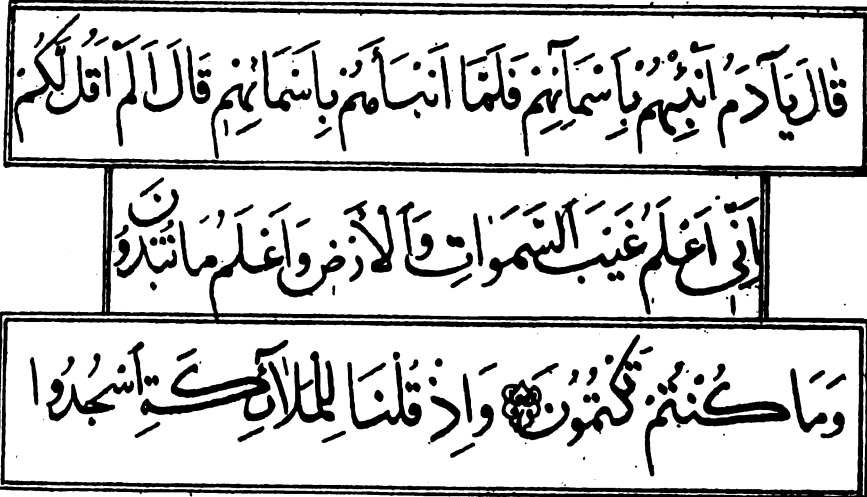 قَالَ يَآ اٰدَمُ اَنْبِئْهُمْ بِاَسْمَآئِهِمْ فَلَمَّٓا اَنْبَاَهُمْ بِاَسْمَائِهِمْ قَالَ اَلَمْ اَقُلْ لَكُمْ
اِنِّٓي اَعْلَمُ غَيْبَ السَّمٰوَاتِ وَالْاَرْضِ وَاَعْلَمُ مَا تُبْدُونَ
وَمَا كُنْتُمْ تَكْتُمُونَ وَاِذْ قُلْنَا لِلْمَلٰٓئِكَةِ اسْجُدُوا